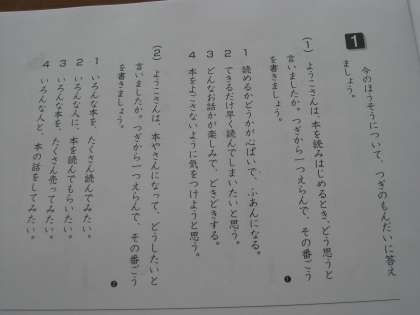 1
今のほうそうについて、つぎのもんだいに答え
ましょう。
(1) ようこさんは、本を読みはじめるとき、どう思うと
言いましたか。つぎから一つえらんで、その番ごう
を書きましょう。
❶
1 読めるかどうかが心ぱいで、ふあんになる。
2 できるだけ早く読んでしまいたいと思う。
3 どんなお話かが楽しみで、どきどきする。
4 本をよごさないように気をつけようと思う。
(2) ようこさんは、本やさんになって、どうしたいと
言いましたか。つぎから一つえらんで、その番ごう
を書きましょう。
❷
1 いろんな本を、たくさん読んでみたい。
2 いろんな人に、本を読んでもらいたい。
3 いろんな本を、たくさん売ってみたい。
4 いろんな人と、本の話をしてみたい。